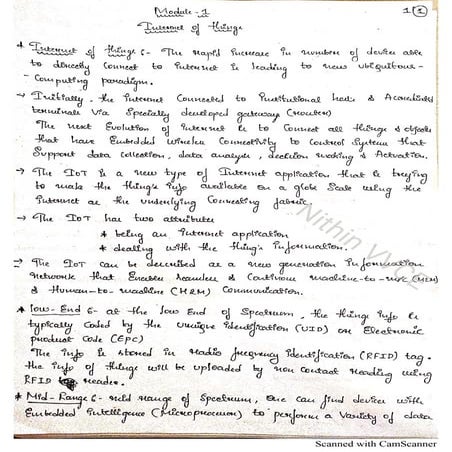 Module - 1
1 (1)
Internet of things
* Internet of things :- The rapid increase in numbers of devices able
to directly connect to internet is leading to new ubiquitous-
Computing paradigm.
→ Initially, the internet Connected to Institutional hosts & Accredited
terminals via Specially developed gateways (routers)
The next Evolution of internet is to Connect all things & objects
that have Embedded wireless Connectivity to Control Systems that
Support data collection, data analysis, decision making & Activation.
→ The IoT is a new type of Internet application that is trying
to make the thing's info available on a globe Scale using the
Internet as the underlying Connecting fabric.
→ The IoT has two attributes
* being an internet application
* dealing with the thing's information.
→ The IoT can be described as a new generation information
Network that Enables Seamless & Continous machine-to-m/c (M2M)
& Human-to-machine (H2M) Communication.
* low-End :- at the low End of Spectrum, the things info is
typically Coded by the unique identification (UID) or Electronic
product Code (EPC)
The info is stored in radio frequency identification (RFID) tag.
the info of things will be uploaded by non contact reading using
RFID reader.
* Mid-Range :- mid range of Spectrum, one can find devices with
Embedded intelligence (Microprocessors) to perform a variety of data
Nithin VVCE
Scanned with CamScanner